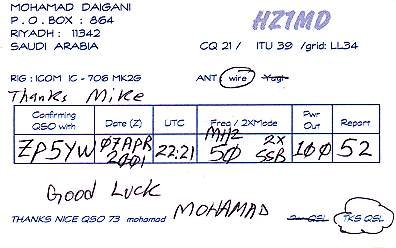 MOHAMAD DAIGANI
P.O.BOX : 864
RIYADH : 11342
SAUDI ARABIA
HZ1MD
CQ 21 / ITU 39 /grid: LL34
RIG : ICOM IC - 706 MK2G ANT : wire Yagi
Thanks Mike
Confirming QSO with Date (Z) UTC Freq / 2XMode Pwr Out Report
ZP5YW 07 APR 2001 22:21 MHZ 50 2X SSB 100 52
Good Luck
THANKS NICE QSO 73 mohamad MOHAMAD Pse QSL TKS QSL